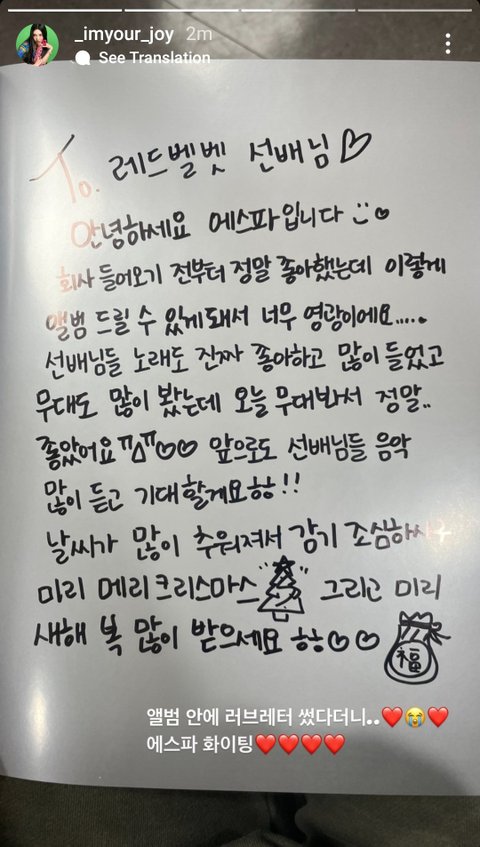 _imyour_joy 2m
See Translation
To. 레드벨벳 선배님♡
안녕하세요 에스파입니다 :) ♡
회사 들어오기 전부터 정말 좋아했는데 이렇게
앨범 드릴 수 있게돼서 너무 영광이에요.....
선배님들 노래도 진짜 좋아하고 많이 들었고
무대도 많이 봤는데 오늘 무대봐서 정말..
좋았어요ㅠㅠ♡♡ 앞으로도 선배님들 음악
많이 듣고 기대할게요ㅎㅎ!!
날씨가 많이 추워져서 감기 조심하시구
미리 메리크리스마스 그리고 미리
새해 복 많이 받으세요 ㅎㅎ♡♡
福
앨범 안에 러브레터 썼다더니..❤️😭❤️
에스파 화이팅❤️❤️❤️❤️